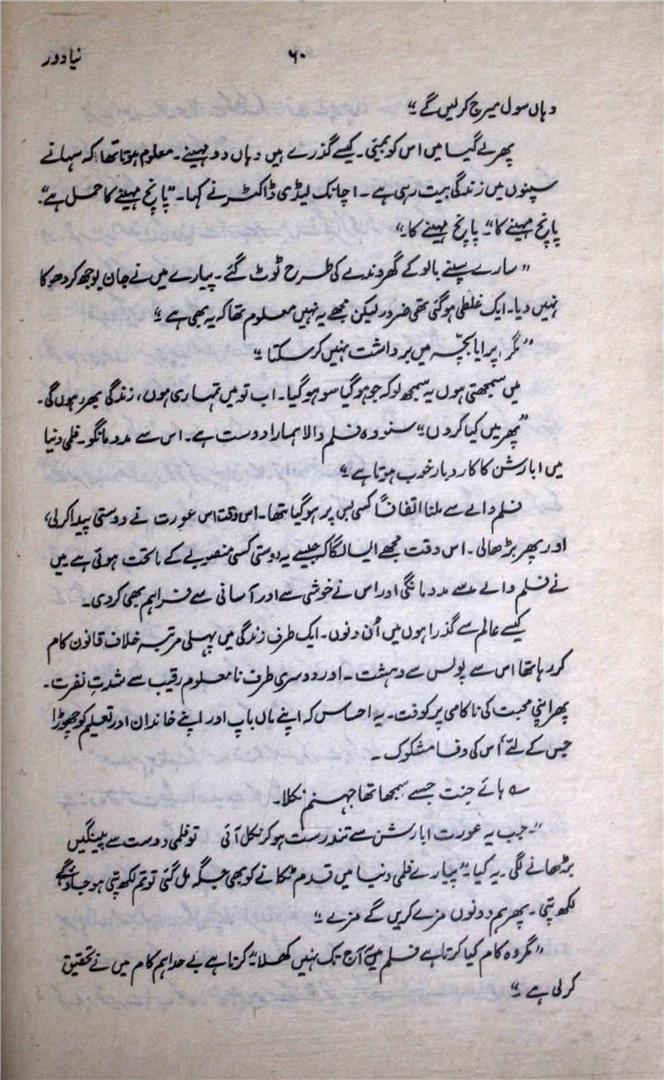 نیا دور
۶۰
وہاں سول میرج کرلیں گے۔"
پھر لے گیا میں اس کو بمبئی۔ کیسے گذرے ہیں وہاں دو مہینے۔ معلوم ہوتا تھا کہ سہانے
سپنوں میں زندگی بیت رہی ہے۔ اچانک لیڈی ڈاکٹر نے کہا۔ "پانچ مہینے کا حمل ہے"۔
پانچ مہینے کا"۔ پانچ مہینے کا۔"
"سارے سپنے بالو کے گھروندے کی طرح ٹوٹ گئے۔ پیارے میں نے جان بوجھ کر دھوکا
نہیں دیا۔ ایک غلطی ہوگئی تھی ضرور لیکن مجھے یہ نہیں معلوم تھا کہ یہ بھی ہے"
"مگر پرایا بچّہ میں برداشت نہیں کرسکتا"
میں سمجھتی ہوں یہ سمجھ لو کہ جو ہوگیا سو ہوگیا۔ اب تو میں تمہاری ہوں، زندگی بھر رہوں گی۔
"پھر میں کیا کروں" سنو وہ فلم والا ہمارا دوست ہے۔ اس سے مدد مانگو۔ فلمی دنیا
میں ابارشن کا کاروبار خوب ہوتا ہے"
فلم والے سے ملنا اتفاقاً کسی بس پر ہوگیا تھا۔ اس وقت اس عورت نے دوستی پیدا کرلی،
اور پھر بڑھالی۔ اس وقت مجھے ایسا لگا کہ جیسے یہ دوستی کسی منصوبے کے ماتحت ہوئی ہے میں
نے فلم والے سے مدد مانگی اور اس نے خوشی سے اور آسانی سے فراہم بھی کردی۔
کیسے عالم سے گذرا ہوں میں اُن دنوں۔ ایک طرف زندگی میں پہلی مرتبہ خلاف قانون کام
کر رہا تھا اس سے پولس سے دہشت۔ اور دوسری طرف نامعلوم رقیب سے شدتِ نفرت۔
پھر اپنی محبت کی ناکامی پر کوفت۔ یہ احساس کہ اپنے ماں باپ اور اپنے خاندان اور تعلیم کو چھوڑا
جس کے لئے، اس کی وفا مشکوک۔
ہائے جنت جسے سمجھا تھا جہنم نکلا۔
"جب یہ عورت ابارشن سے تندرست ہوکر نکل آئی تو فلمی دوست سے پینگیں
بڑھانے لگی۔ یہ کیا" پیارے فلمی دنیا میں قدم ٹکانے کو بھی جگہ مل گئی تو تم لکھ پتی ہوجاؤگے
لکھ پتی۔ پھر ہم دونوں مزے کریں گے مزے"
"مگر وہ کام کیا کرتا ہے فلم میں آج تک نہیں کھلا" کرتا ہے بے حد اہم کام میں نے تحقیق
کرلی ہے۔"